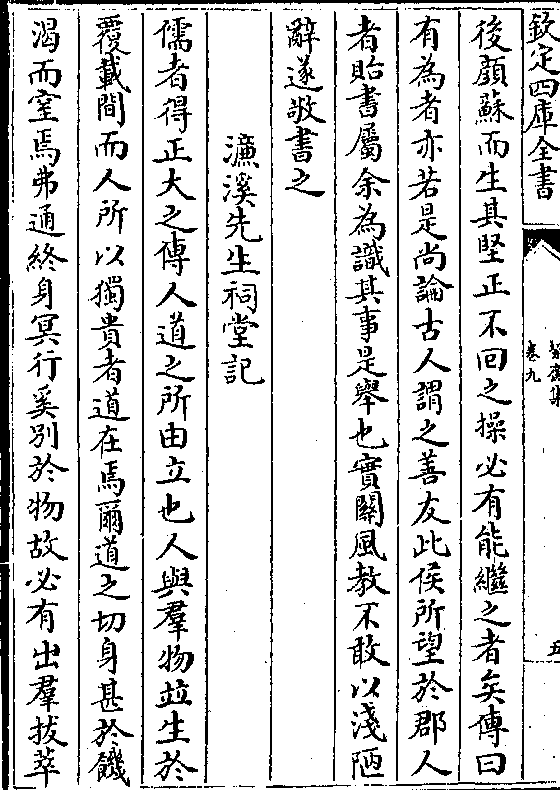 欽定四庫全書
卷九
五
後顔蘇而生其堅正不回之操必有能繼之者矣傳曰
有為者亦若是尚論古人謂之善友此侯所望於郡人
者貽書屬余為識其事是舉也實關風教不敢以淺陋
辭遂敬書之
濂溪先生祠堂記
儒者得正大之傳人道之所由立也人與羣物並生於
覆載間而人所以獨貴者道在焉爾道之切身甚於饑
渴而室焉弗通終身冥行奚别於物故必有出羣拔萃